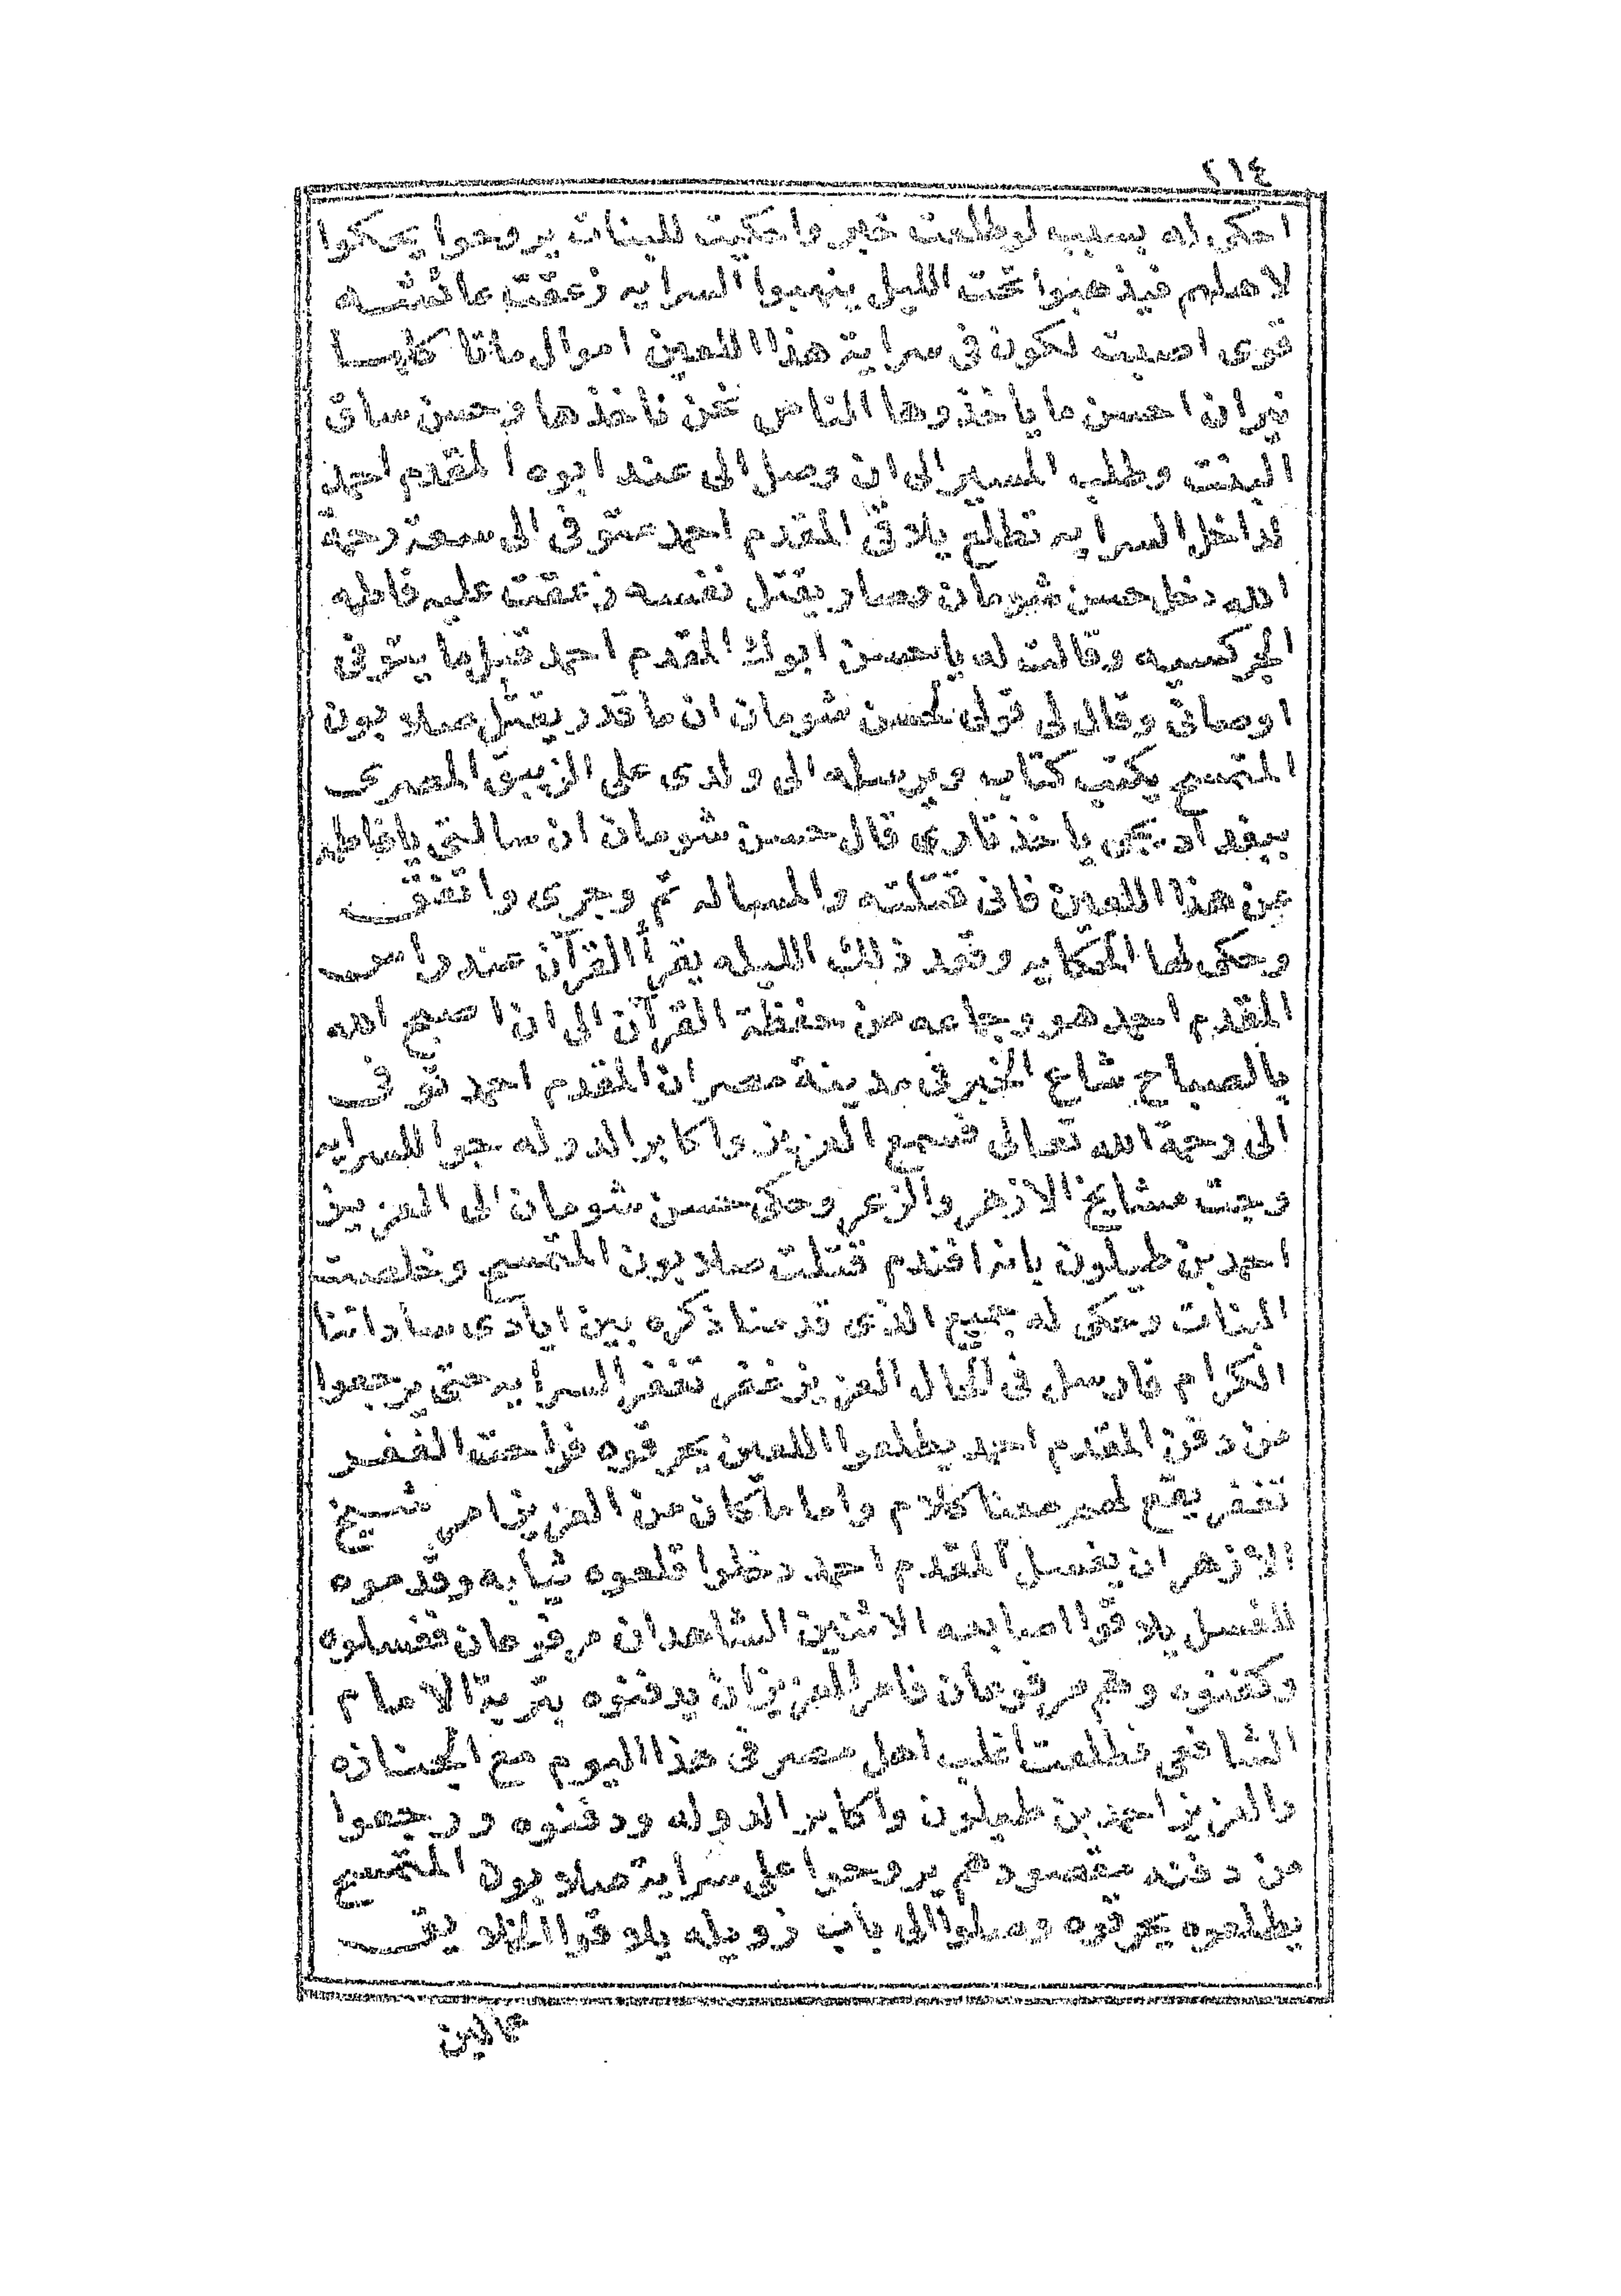 ٢١٤
احكى له بسبب لوطلعت خبر واحكيت للبنات يروحوا يحكوا
لاهلهم فيذهبوا تحت الليل ينهبوا السرايه زعقت عائشه
قوى اصبت لكون فى سراية هذا اللعين اموال ماتا كلها
نيران احسن ما ياخذوها الناس نحن ناخذها وحسن ساق
البنت وطلب المسير الى ان وصل الى عند ابوه المقدم احمد
لداخل السرايه تطلع يلاقى المقدم احمد متوفى الى سعة رحمة
الله دخل حسن شومان وصار يقتل نفسه زعقت عليه فاطمه
الجركسيه وقالت له ياحسن ابوك المقدم احمد قبل ما يتوفى
اوصانى وقال لى قولى لحسن شومان ان ما قدر يقتل صلابون
المقسم يكتب كتاب ويرسله الى ولدى على الزيبق المصرى
ببغداد يجى ياخذ تارى قال حسن شومان ان سالتى يا فاطمه
عن هذا اللعين فانى قتلته والمساله تم وجرى واتفق
وحكى لها الحكايه وقعد ذلك الليله يقرأ القرآن عند راس
المقدم احمد هو وجماعه من حفظة القرآن الى ان اصبح الله
بالصباح شاع الخبر فى مدينة مصر ان المقدم احمد توفى
الى رحمة الله تعالى فسمع العزيز واكابر الدوله جوا للسرايه
وجت مشايخ الازهر والزعر وحكى حسن شومان الى العزيز
احمد بن طيلون يا نرافندم قتلت صلابون المقسم وخلصت
البنات وحكى له جميع الذى قدمنا ذكره بين ايادى ساداتنا
الكرام فارسل فى الحال العزيز غفر تغفر السرايه حتى يرجعوا
من دفن المقدم احمد يطلعوا اللعين يحرقوه فراحت الغفر
تغفر يقع لهم معنا كلام واما ما كان من العزيز امر شيخ
الازهر ان يغسل المقدم احمد دخلوا قلعوه ثيابه وقدموه
للغسل يلاقوا اصابعه الاثنين الشاهدان مرفوعان فغسلوه
وكفنوه وهم مرفوعان فامر العزيز ان يدفنوه بتربة الامام
الشافعى فطلعت اغلب اهل مصر فى هذا اليوم مع الجنازه
والعزيز احمد بن طيلون واكابر الدوله ودفنوه ورجعوا
من دفنه مقصودهم يروحوا على سراية صلابون المقسم
يطلعوه يحرقوه وصلوا الى باب زويله يلاقوا الخلايق